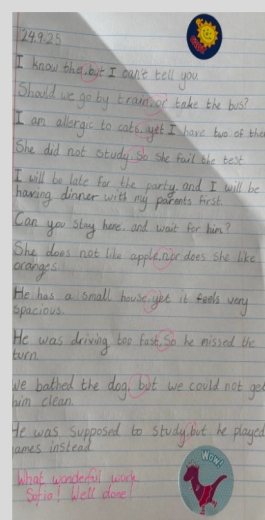 24.9.25
I know the, but I can't tell you
Should we go by train, or take the bus?
I am allergic to cats, yet I have two of them
She did not study. So she fail the test
I will be late for the party, and I will be
having dinner with my parents first.
Can you stay here, and wait for him?
She does not like apple, nor does she like
oranges.
He has a small house, yet it feels very
spacious.
He was driving too fast, So he missed the
turn.
We bathed the dog, but we could not get
him clean.
He was supposed to study, but he played
games instead
WOW!
What wonderful work
Sofia! Well done!